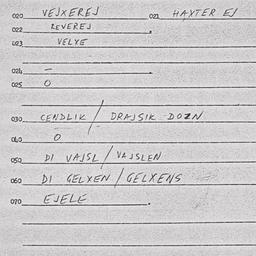 020 VEJXEREJ 021 HAXTER EJ
022 REVEREJ
023 VELXE
024 –
025 O
030 CENDLIK / DRAJSIK DOZN
040 O
050 DI VAJSL / VAJSLEN
060 DI GELXEN / GELXENS
070 EJELE